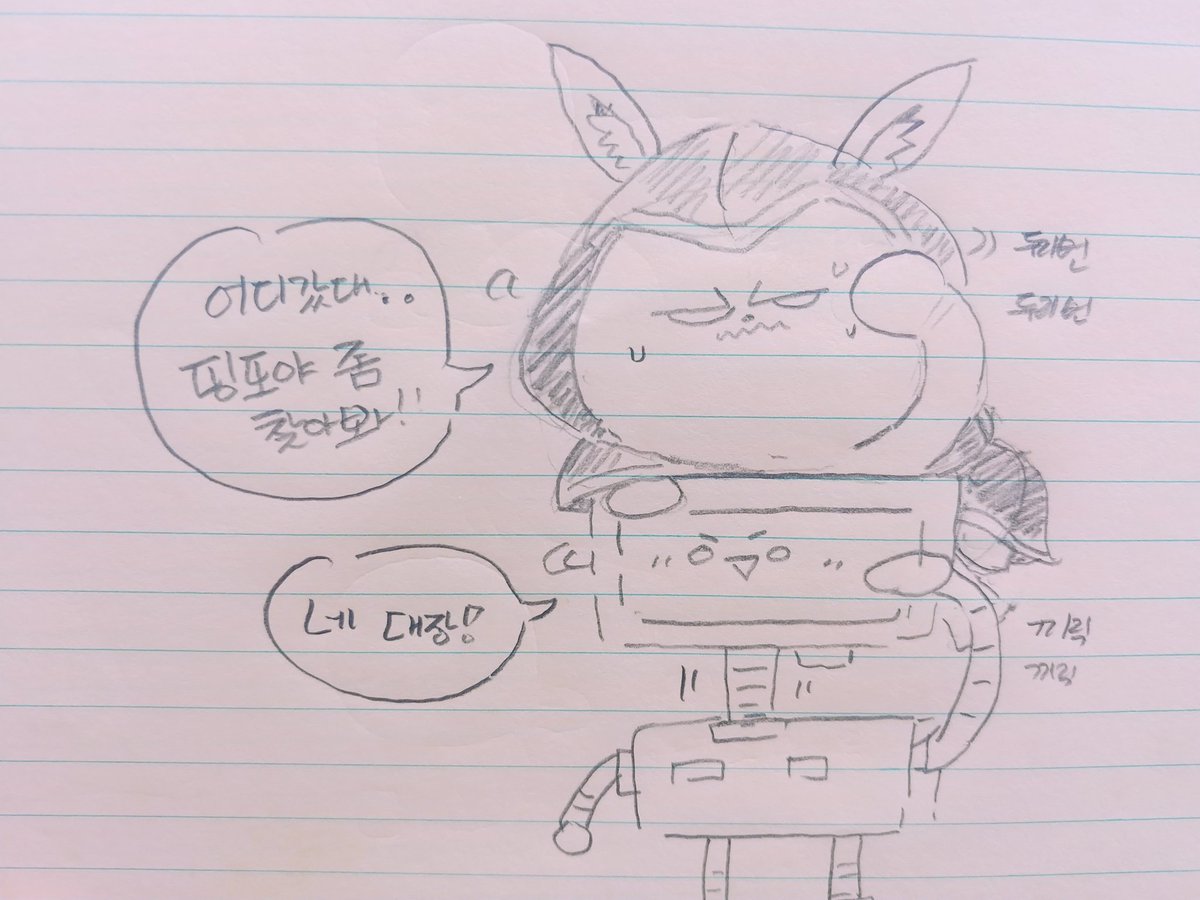 어디갔대..
핑포야 좀
찾아봐!!
두리번
두리번
네 대장!
끼릭
끼릭